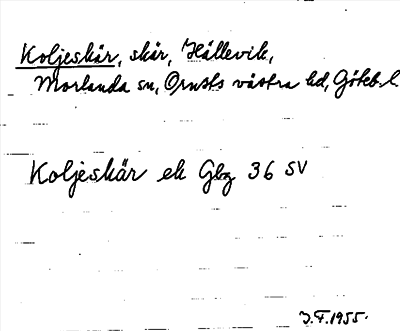 Koljeskär, skär, Hällevik,
Morlanda sn, Orusts västra hd, Göteb. l.
Koljeskär ek Gbg 36 SV
J.F. 1955.